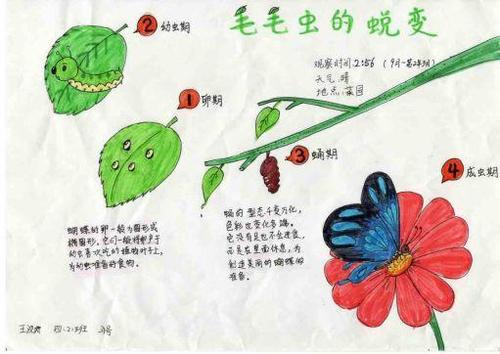 毛毛虫的蜕变
观察时间:2:56 (9月一第2周)
天气:晴
地点:菜园
2 幼虫期
1 卵期
3 蛹期
4 成虫期
蝴蝶的卵一般为圆形或
椭圆形,它们一般将卵产于
幼虫喜欢吃的植物叶子上,
为幼虫准备好食物。
蛹的型态千变万化,
色彩也变化多端。
它没有足也不会进食,
而是在里面休息,为
创造美丽的蝴蝶做
准备。
四.2班